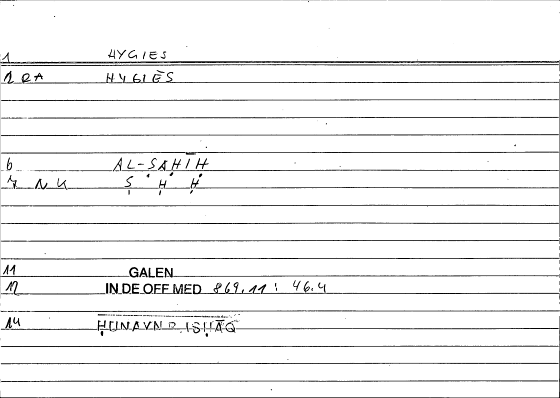 1 HYGIES
2 RA HYGIĒS
6 AL-ṢAḤĪḤ
7 N K Ṣ Ḥ Ḥ
11 GALEN
12 IN.DE OFF MED 869.11 : 46.4
14 ḤUNAYN B. ISḤĀQ